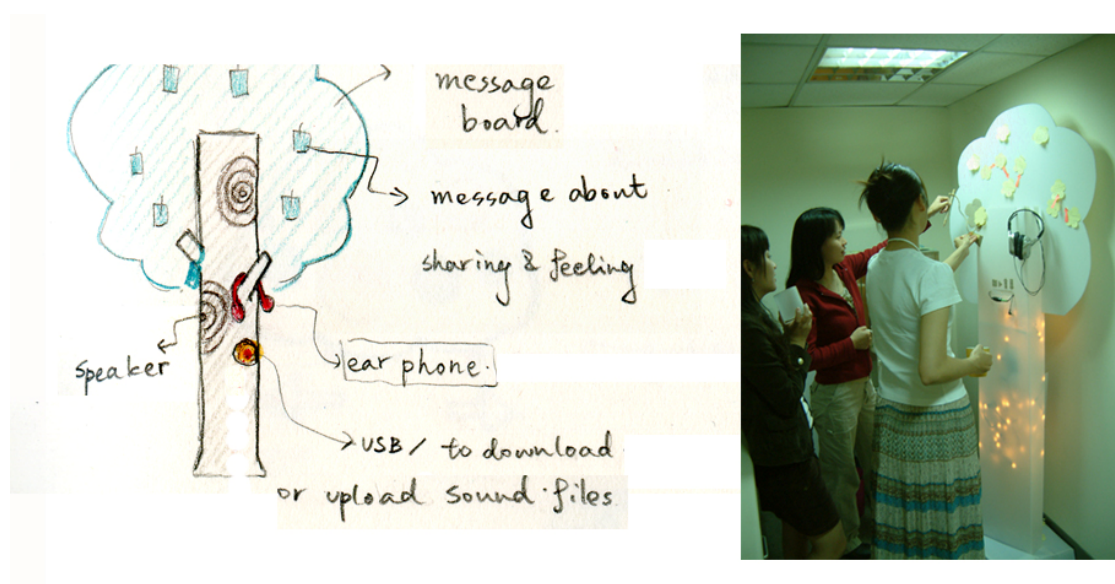 message
board.
message about
sharing & feeling
speaker
ear phone.
USB / to download
or upload sound files.